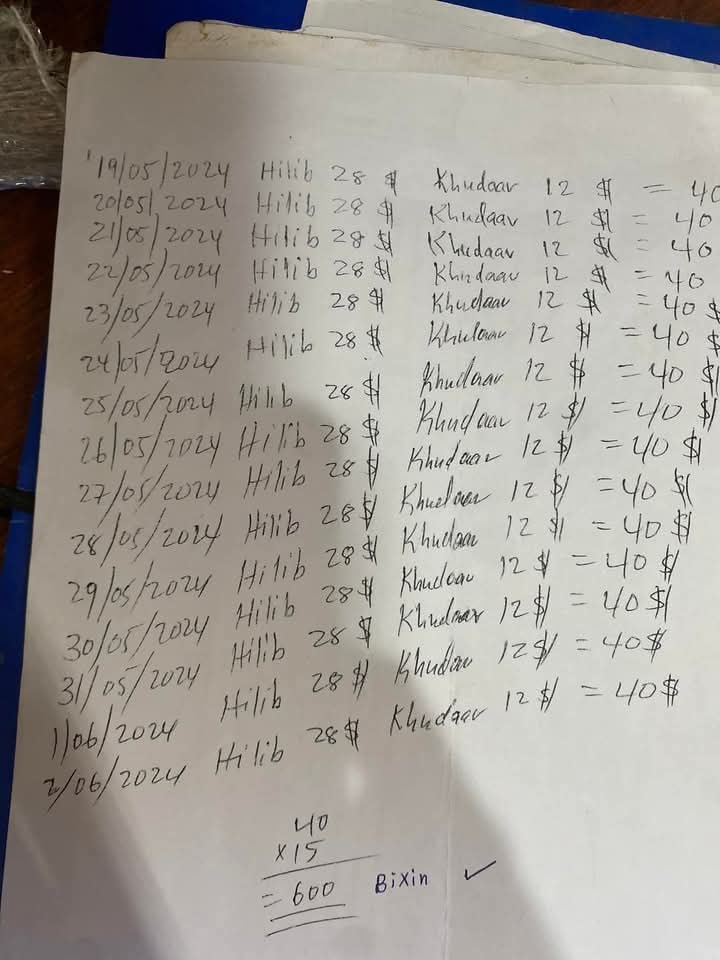 19/05/2024 Hilib 28 $ Khudaar 12 $ = 40
20/05/2024 Hilib 28 $ Khudaar 12 $ = 40
21/05/2024 Hilib 28 $ Khudaar 12 $ = 40
22/05/2024 Hilib 28 $ Khudaar 12 $ = 40
23/05/2024 Hilib 28 $ Khudaar 12 $ = 40 $
24/05/2024 Hilib 28 $ Khudaar 12 $ = 40 $
25/05/2024 Hilib 28 $ Khudaar 12 $ = 40 $
26/05/2024 Hilib 28 $ Khudaar 12 $ = 40 $
27/05/2024 Hilib 28 $ Khudaar 12 $ = 40 $
28/05/2024 Hilib 28 $ Khudaar 12 $ = 40 $
29/05/2024 Hilib 28 $ Khudaar 12 $ = 40 $
30/05/2024 Hilib 28 $ Khudaar 12 $ = 40 $
31/05/2024 Hilib 28 $ Khudaar 12 $ = 40 $
1/06/2024 Hilib 28 $ Khudaar 12 $ = 40 $
2/06/2024 Hilib 28 $ Khudaar 12 $ = 40 $
40
x 15
= 600 Bixin ✓